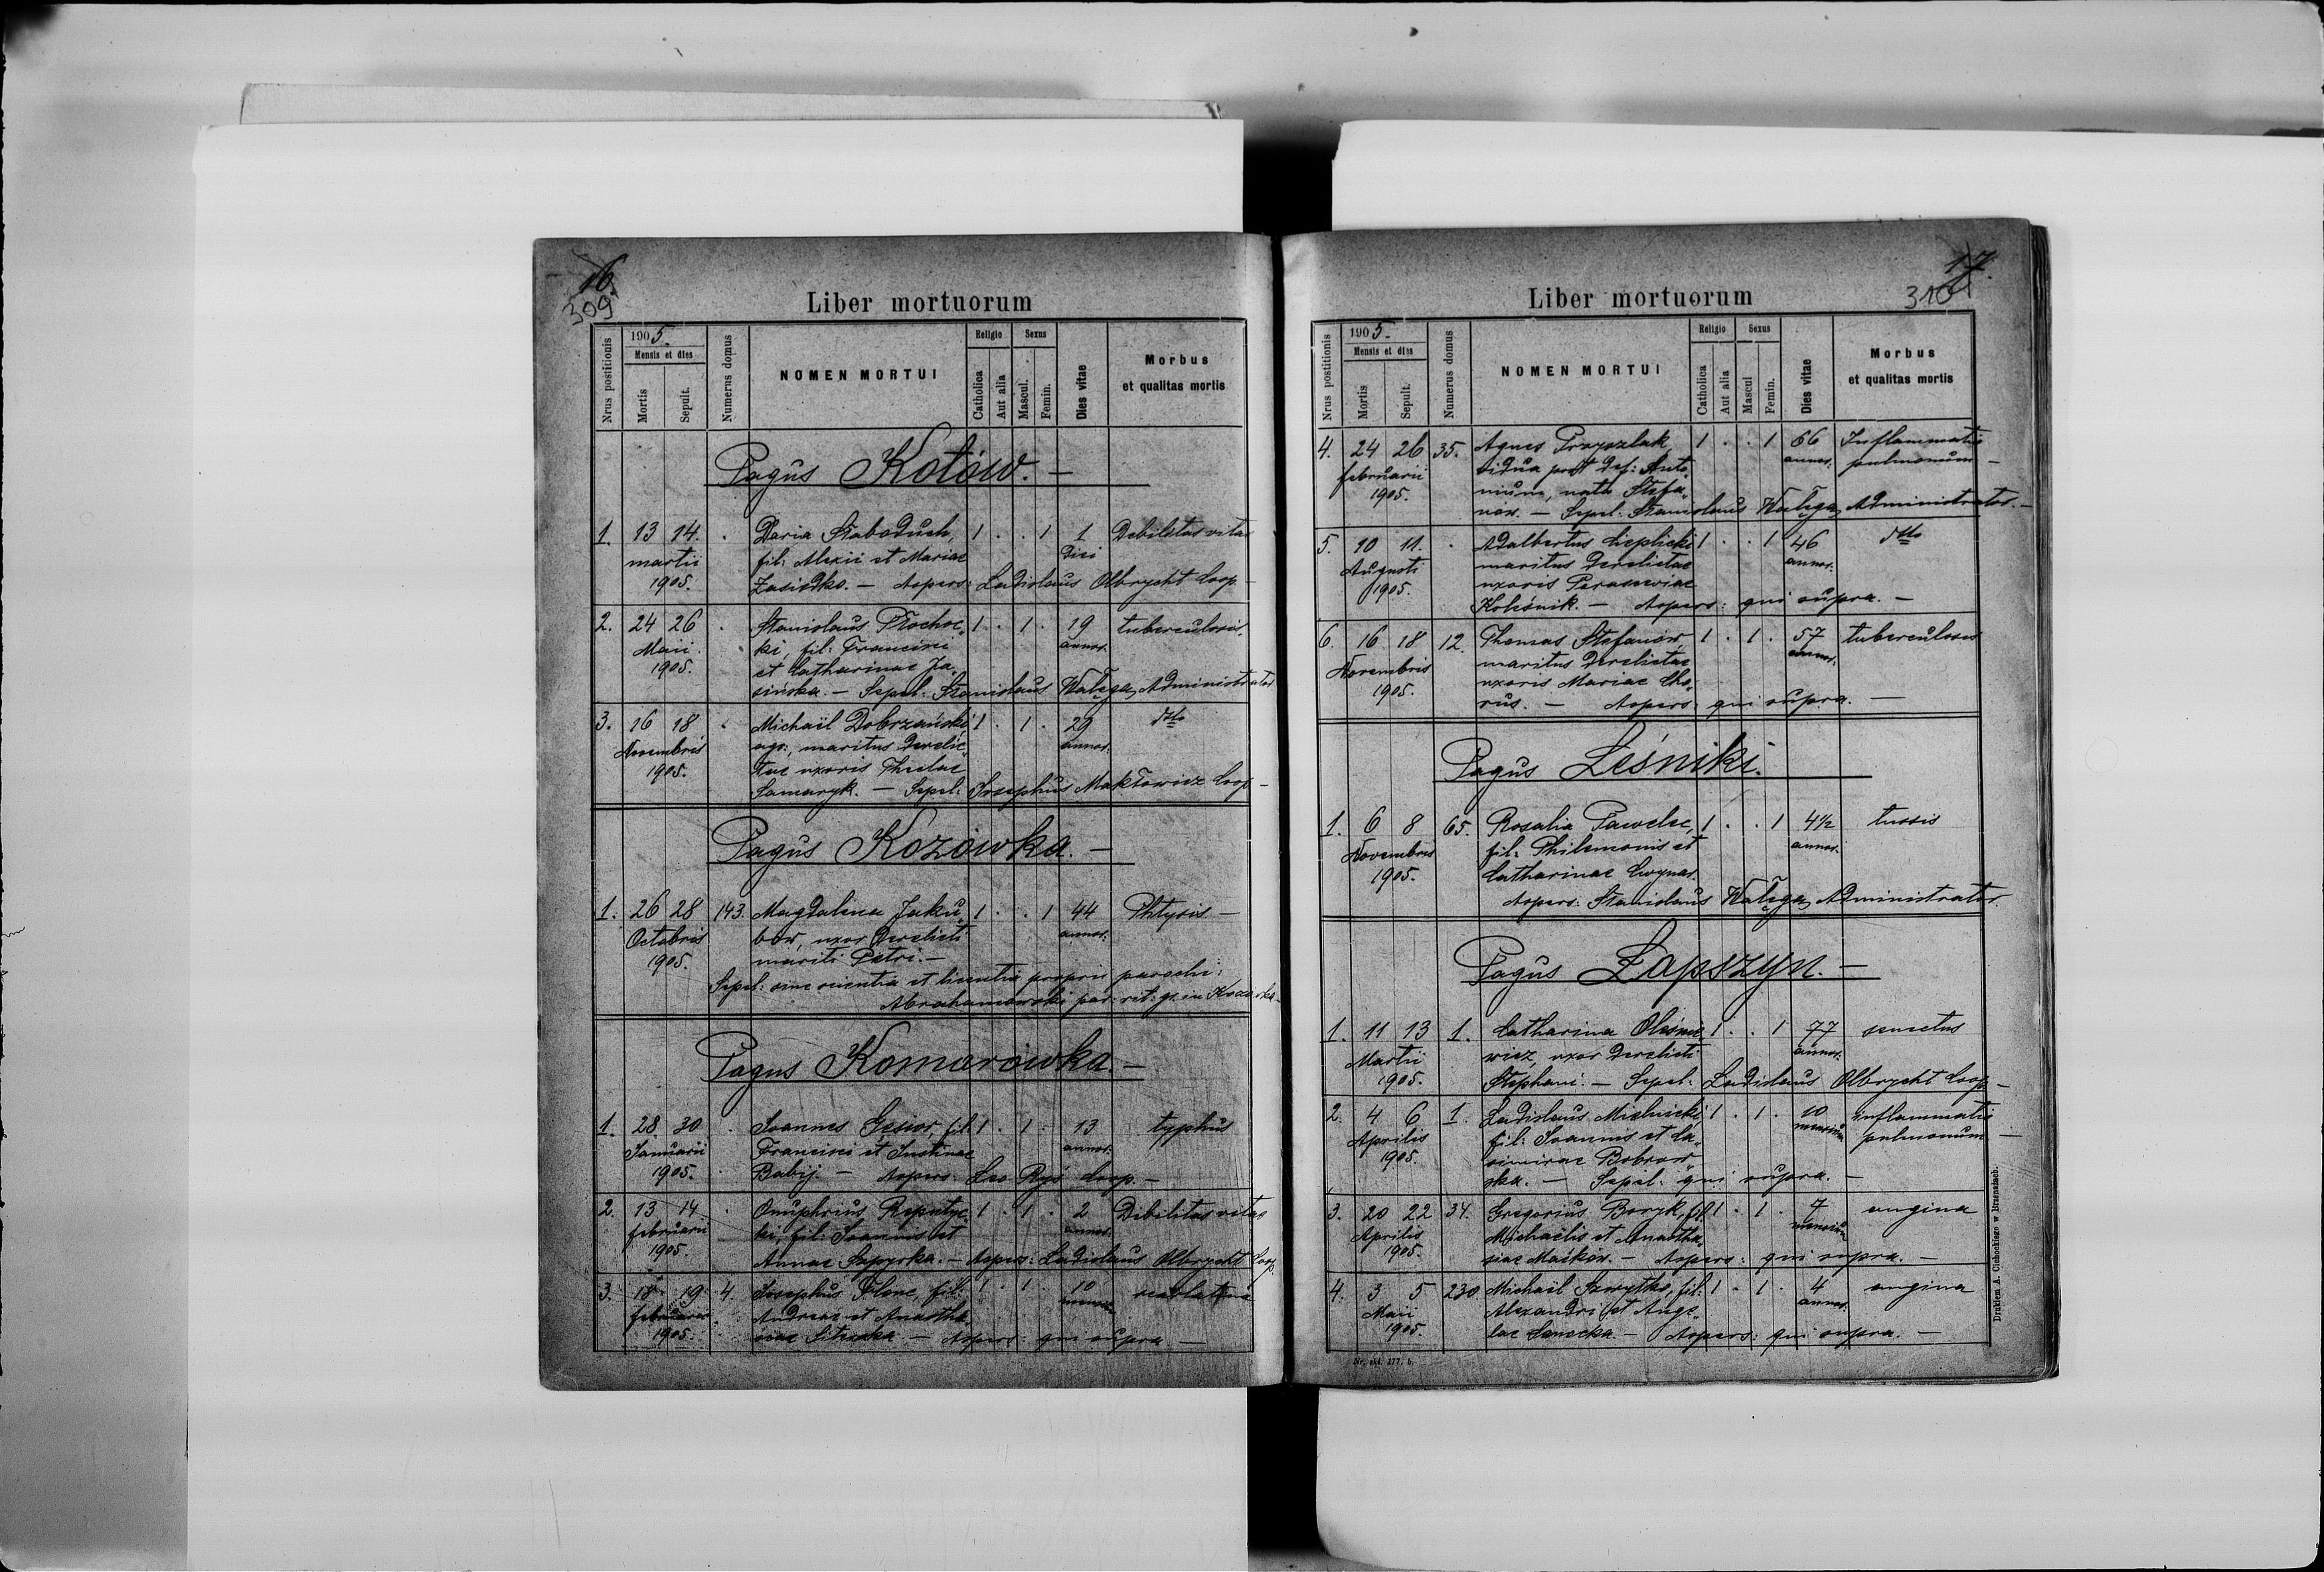 16.
309
Liber mortuorum
Nrus postitionis
1905.
Mensis et dies
Mortis
Sepult.
Numerus domus
NOMEN MORTUI
Religio
Catholica
Aut alia
Sexus
Mascul.
Femin.
Dies vitae
Morbus
et qualitas mortis
Pagus Kotów. —
1. 13 14. . Daria Słaboduch, 1 . . 1 1 Debilitas vitae
martii fil: Alexii et Mariae Diei
1905. Zasidko. — Aspers: Ladislaus Olbrycht Coop —
2. 24 26 . Stanislaus Płochoc„ 1 . 1 . 19 tuberculosis.
Maii ki, fil: Francisci annor.
1905. et Catharinae Ja„
sińska. — Sepel: Stanislaus Wałęga, Administrator
3. 16 18 . Michaël Dobrzański 1 . 1 . 29 dtto
Novembris agr:, maritus derelic„ annor.
1905. tae uxoris Theclae
Samaryk. — Sepel: Josephus Makłowicz Coop —
Pagus Kozówka. —
1. 26 28 143. Magdalena Jaku„ 1 . . 1 44 Phtysis —
Octobris bow, uxor derelicti annor.
1905. mariti Petri. —
Sepel: sine scientia et licentia proprii parochi:
Abrahamowski par: rit: gr. in Kozowka —
Pagus Komarówka. —
1. 28 30 . Joannes Gesior, fil: 1 . 1 . 13 typhus
Januarii Francisci et Justinae annor.
1905. Babij. — Aspers: Leo Ryś Coop. —
2. 13 14 . Onuphrius Reputyc„ 1 . 1 . 2 Debilitas vitae
februarii ki, fil: Joannis et annor.
1905. Annae Sapyrka. — Aspers: Ladislaus Olbrycht Coop.
3. 18 19 4. Josephus Flonc, fil: 1 . 1 . 10 scarlatina
februarii Andreae et Anastha„ mensium
1905. siae — Aspers: qui supra —
17.
310
Liber mortuorum
Nrus postitionis
1905.
Mensis et dies
Mortis
Sepult.
Numerus domus
NOMEN MORTUI
Religio
Catholica
Aut alia
Sexus
Mascul
Femin.
Dies vitae
Morbus
et qualitas mortis
4. 24 26 35. Agnes Przyszlak 1 . . 1 66 Inflammatio
februarii vidua post def: Anto„ annor. pulmonum —
1905. nium, nata Stefa„
nów. — Sepel: Stanislaus Wałęga, Administrator. —
5. 10 11. . Adalbertus Cieplicki 1 . . 1 46 dtto
Augusti maritus derelictae annor.
1905. uxoris Parasceviae
Koleśnik. — Aspers: qui supra. —
6. 16 18 12. Thomas Stefanów, 1 . 1 . 57 tuberculoses
Novembris maritus derelictae annor.
1905. uxoris Mariae Cho„
rus. — Aspers: qui supra. —
Pagus Leśniki.
1. 6 8 65. Rosalia Pawelec, 1 . . 1 4½ tussis
Novembris fil: Philemonis et annor.
1905. Catharinae Cwynar.
Aspers: Stanislaus Wałęga, Administrator.
Pagus Łapszyn. —
1. 11 13 1. Catharina Oleśnie„ 1 . . 1 77 senectus
Martii wicz, uxor derelicti annor.
1905. Stephani. — Sepel: Ladislaus Olbrycht Coop —
2. 4 6 1. Ladislaus Mielnicki 1 . 1 . 10 inflammatio
Aprilis fil: Joannis et Ca„ mensium pulmonum —
1905. simirae Bobrow„
ska. — Sepel: qui supra. —
3. 20 22 34. Gregorius Boryk, fil 1 . 1 . 7 angina
Aprilis Michaëlis et Anastha„ mensium
1905. siae Maików. — Aspers: qui supra. —
4. 3 5 230 Michaël Szwytko, fil: 1 . 1 . 4 angina
Maii Alexandri et Ange„ annor.
1905. lae Senecka. — Aspers: qui supra. —
Nr. skł. 277. b.
Drukiem A. Cichockiego w Brzeżanach.